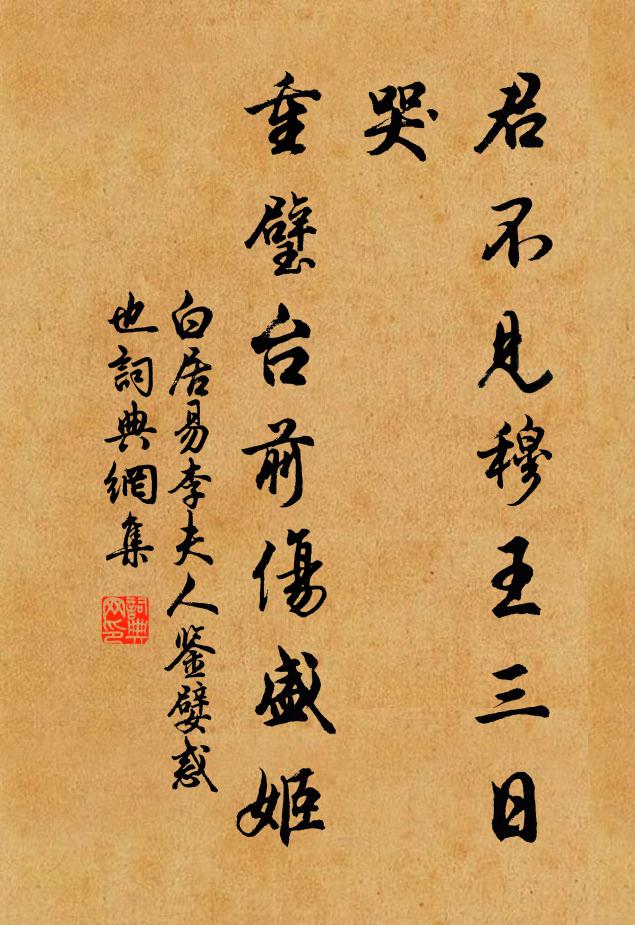 君不見穆王三日
哭
重璧台前傷盛姬
白居易李夫人鉴嬖惑
也詞典網集
詞典
网印